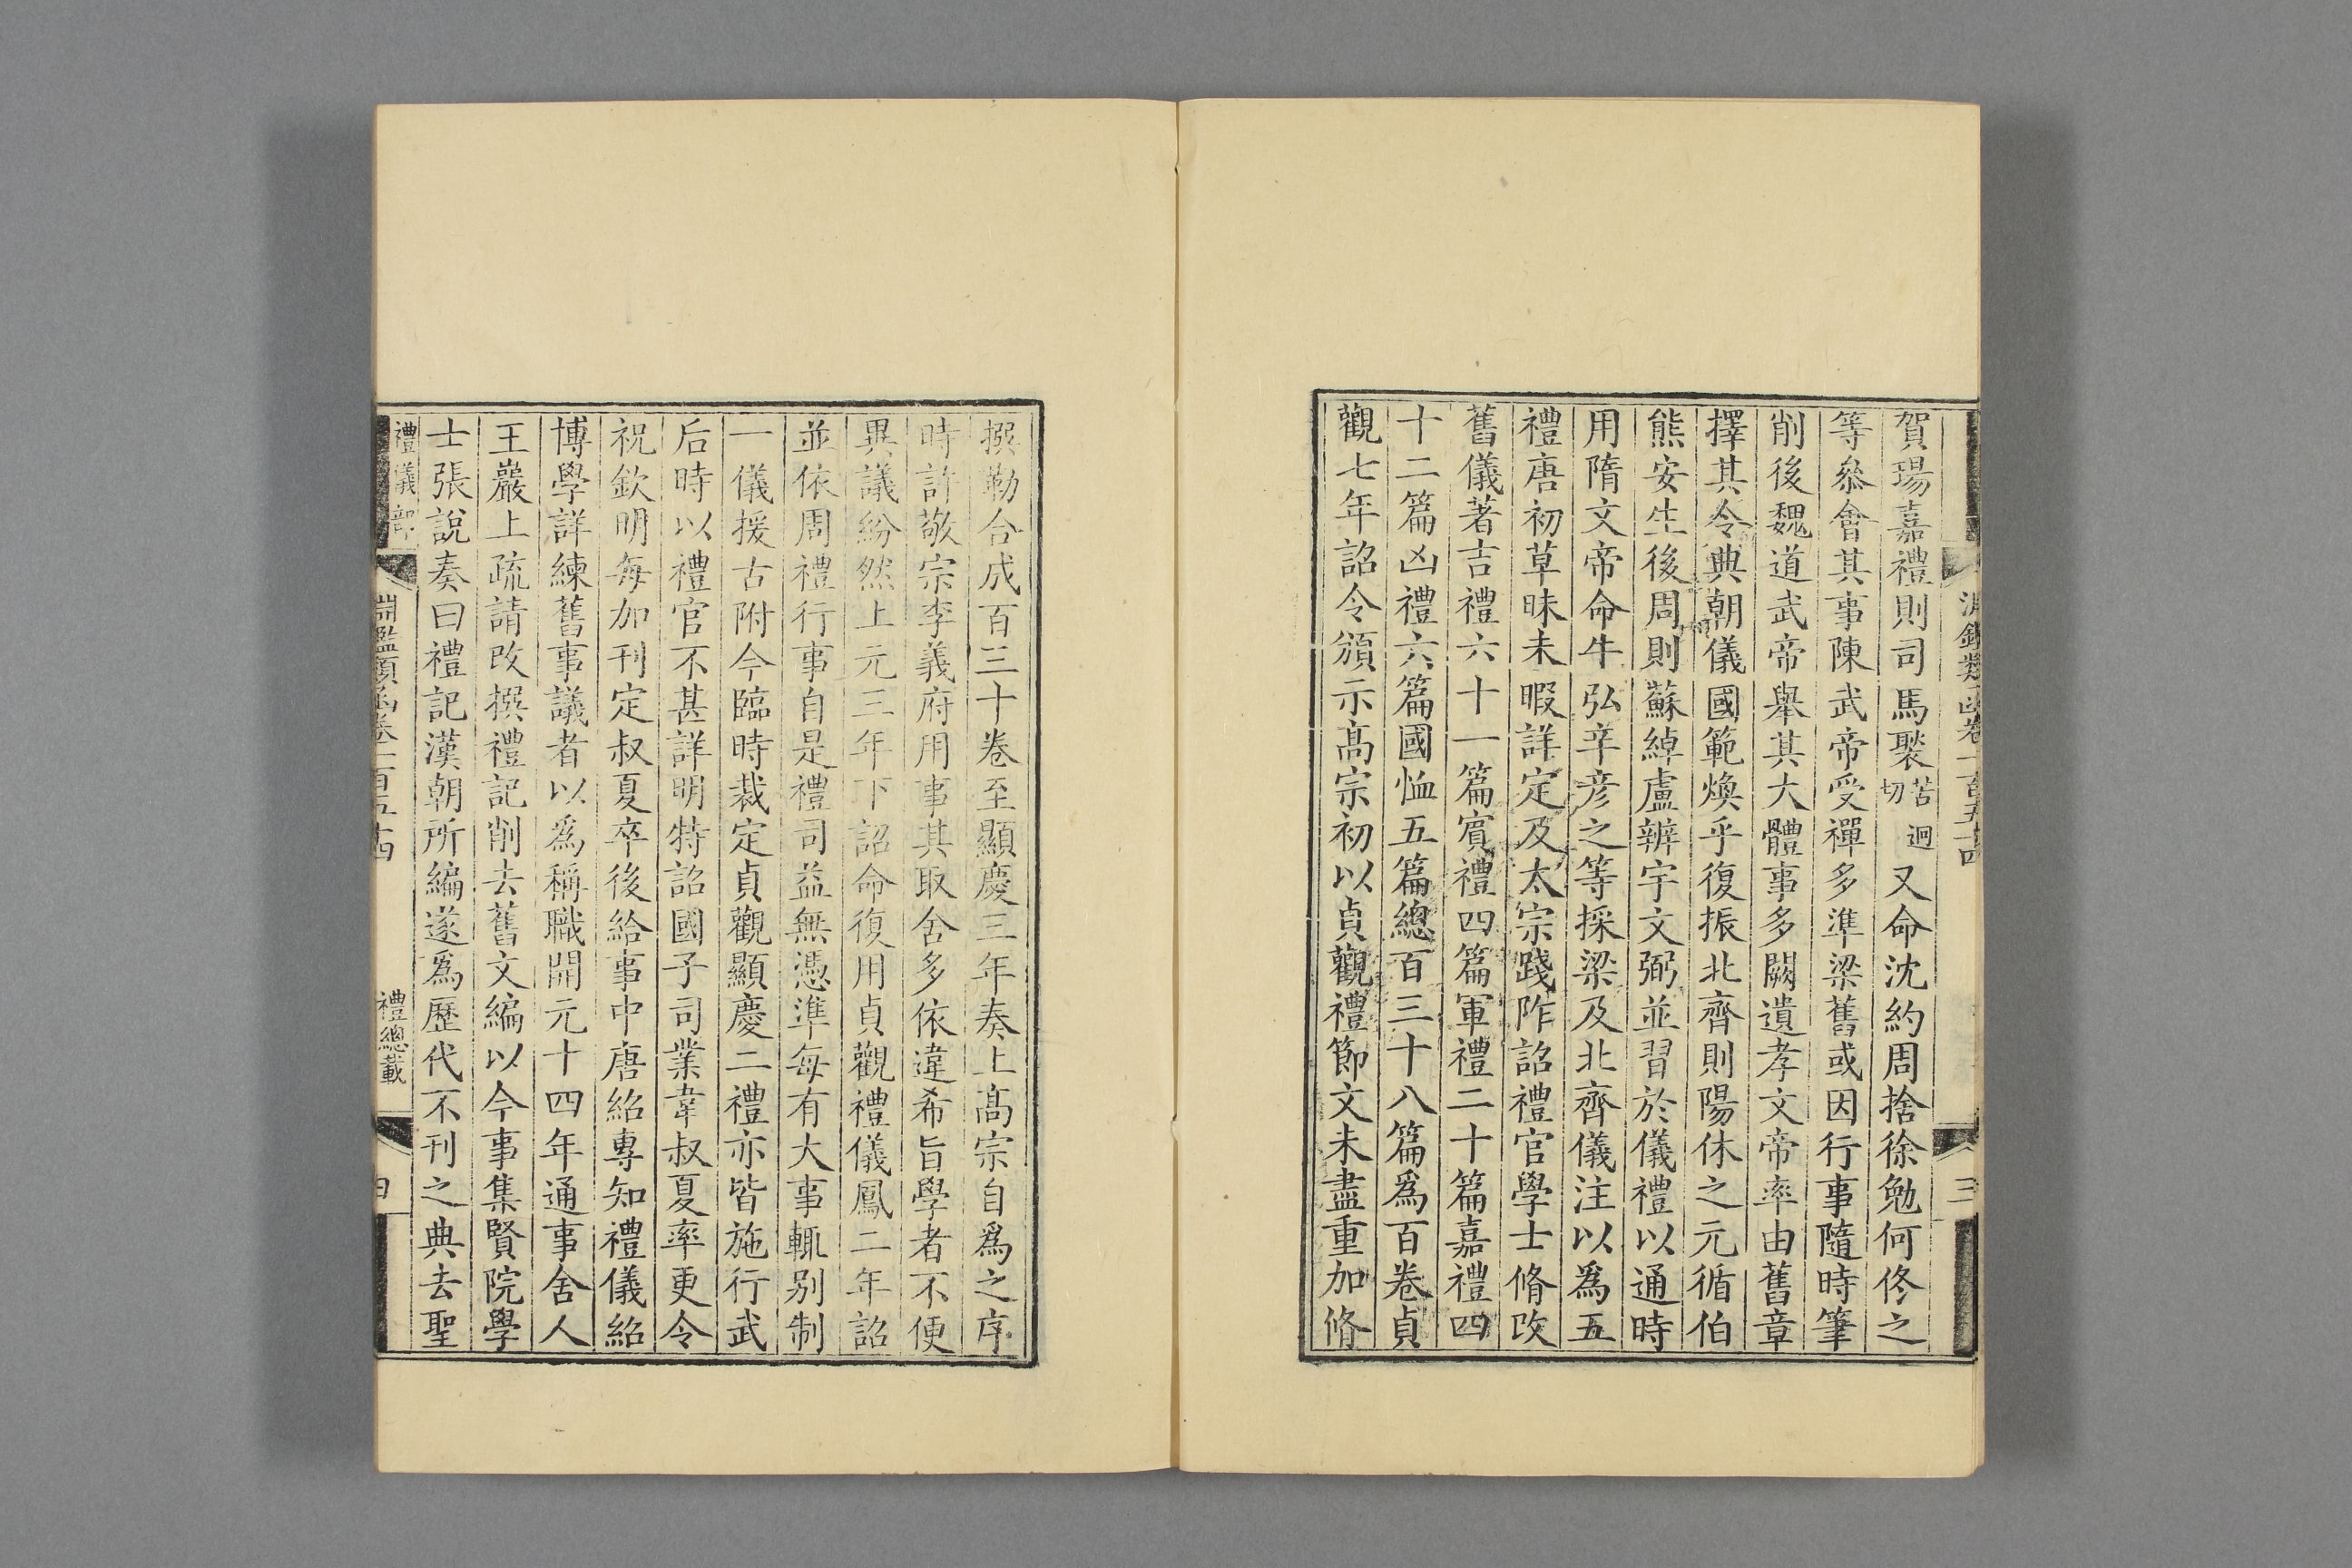 賀瑒嘉禮則司馬褧苦迥切又命沈約周捨徐勉何佟之
等叅會其事陳武帝受禪多準梁舊或因行事隨時筆
削後魏道武帝舉其大體事多闕遺孝文帝率由舊章
擇其令典朝儀國範煥乎復振北齊則陽休之元循伯
熊安生後周則蘇綽盧辨宇文弼並習於儀禮以通時
用隋文帝命牛弘辛彦之等採梁及北齊儀注以爲五
禮唐初草昧未暇詳定及太宗踐阼詔禮官學士脩改
舊儀著吉禮六十一篇賓禮四篇軍禮二十篇嘉禮四
十二篇凶禮六篇國恤五篇總百三十八篇爲百卷貞
觀七年詔令頒示髙宗初以貞觀禮節文未盡重加脩
撰勒合成百三十卷至顯慶三年奏上髙宗自爲之序
時許敬宗李義府用事其取舍多依違希旨學者不便
異議紛然上元三年下詔命復用貞觀禮儀鳳二年詔
並依周禮行事自是禮司益無憑準每有大事輒别制
一儀援古附今臨時裁定貞觀顯慶二禮亦皆施行武
后時以禮官不甚詳明特詔國子司業韋叔夏率更令
祝欽明每加刊定叔夏卒後給事中唐紹專知禮儀紹
博學詳練舊事議者以爲稱職開元十四年通事舍人
王巖上疏請改撰禮記削去舊文編以今事集賢院學
士張説奏曰禮記漢朝所編遂爲歷代不刊之典去聖
禮儀部
淵鑑類函卷一百五十四
禮總載
四